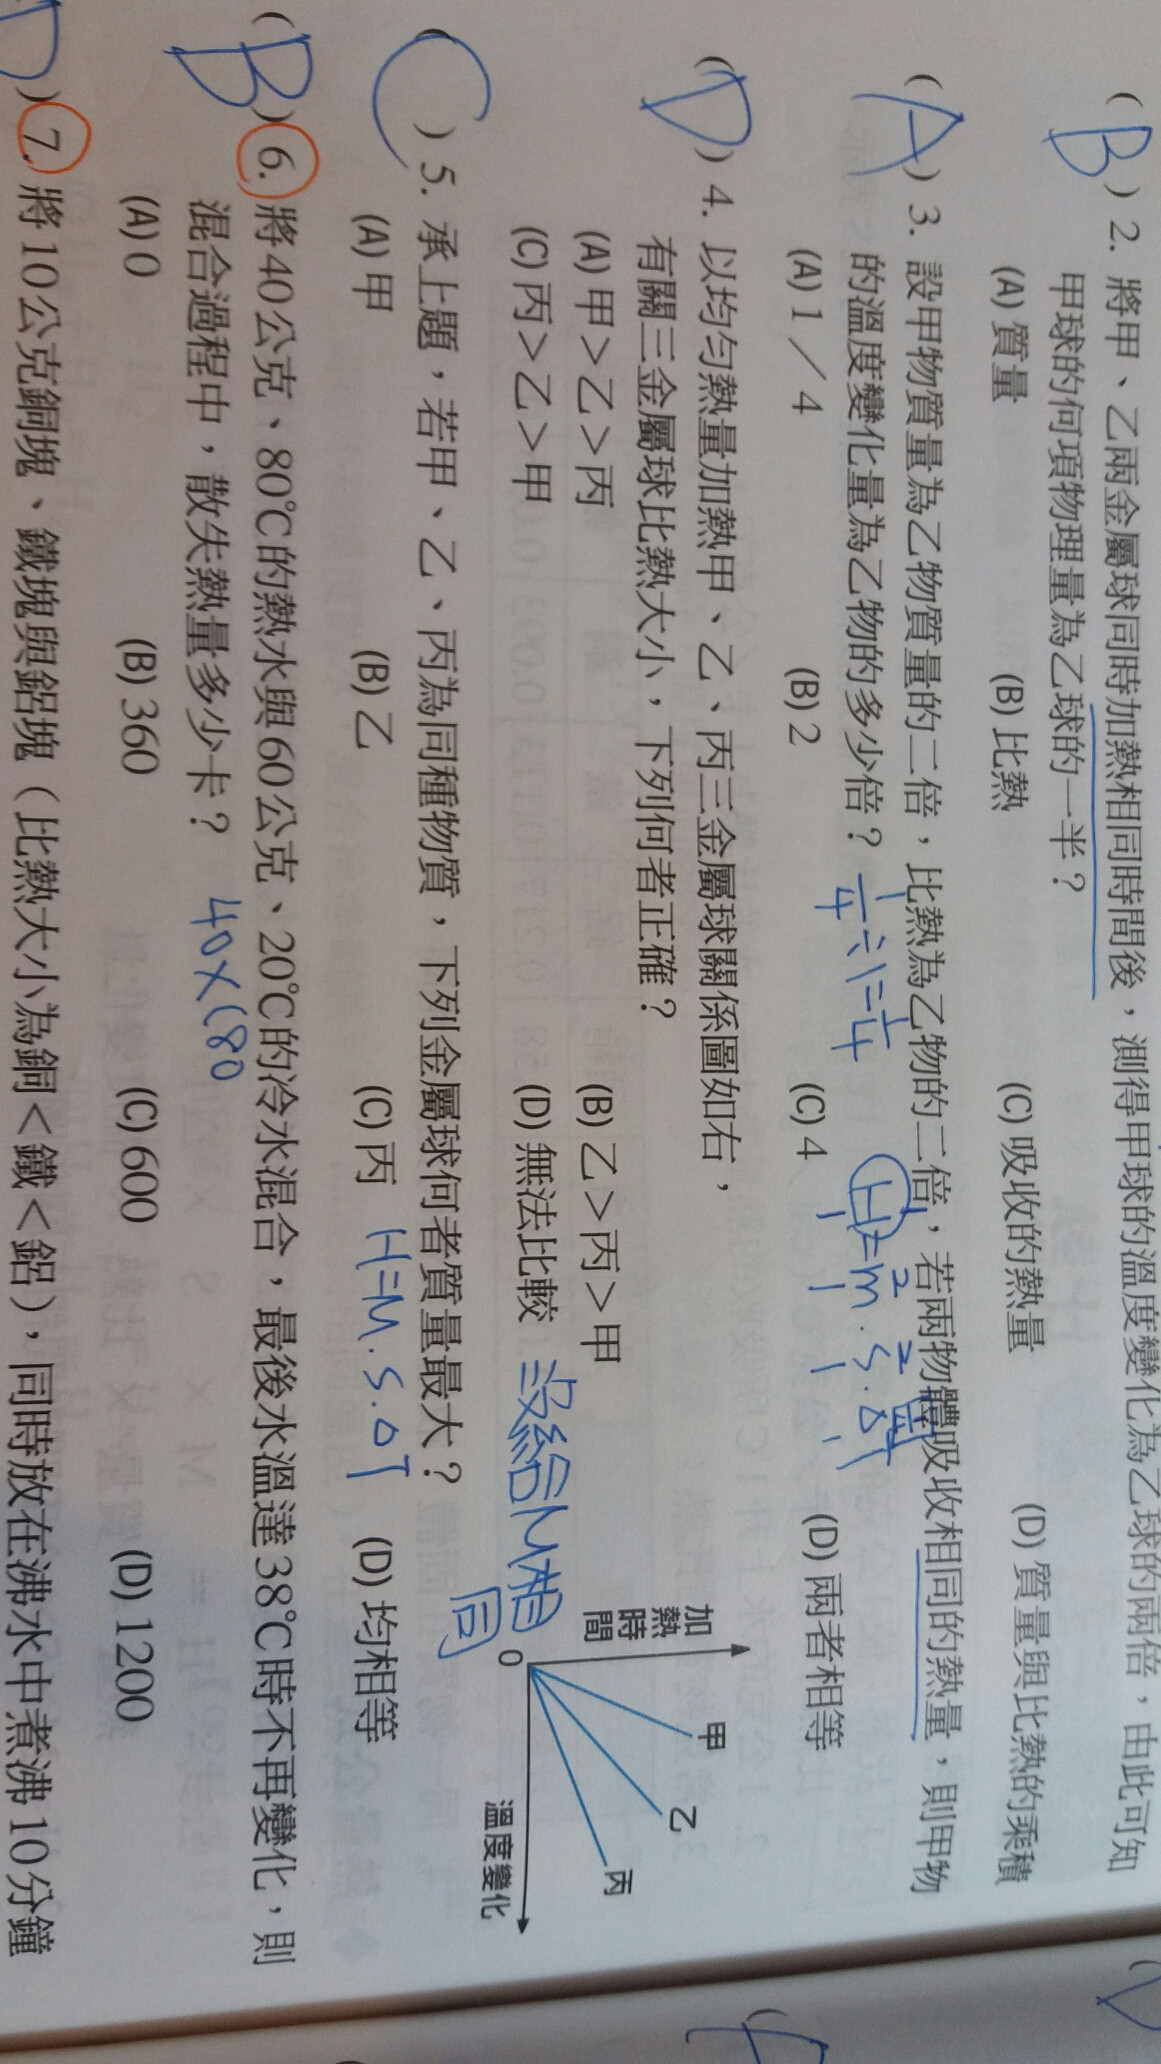 (B) 2. 將甲、乙兩金屬球同時加熱相同時間後，測得甲球的溫度變化為乙球的兩倍，由此可知
甲球的何項物理量為乙球的一半？
(A) 質量 (B) 比熱 (C) 吸收的熱量 (D) 質量與比熱的乘積
(A) 3. 設甲物質量為乙物質量的二倍，比熱為乙物的二倍，若兩物體吸收相同的熱量，則甲物
的溫度變化量為乙物的多少倍？
(A) 1／4 (B) 2 (C) 4 (D) 兩者相等
1/4 ÷ 1 = 1/4
H=m．S．△T
1 1 1 1
2 2
(D) 4. 以均勻熱量加熱甲、乙、丙三金屬球關係圖如右，
有關三金屬球比熱大小，下列何者正確？
(A) 甲＞乙＞丙 (B) 乙＞丙＞甲
(C) 丙＞乙＞甲 (D) 無法比較 沒給M相
同
加熱時間
甲
乙
丙
0
溫度變化
(C) 5. 承上題，若甲、乙、丙為同種物質，下列金屬球何者質量最大？
(A) 甲 (B) 乙 (C) 丙 (D) 均相等
H=M．S．△T
(B) 6. 將40公克、80℃的熱水與60公克、20℃的冷水混合，最後水溫達38℃時不再變化，則
混合過程中，散失熱量多少卡？ 40×(80
(A) 0 (B) 360 (C) 600 (D) 1200
(D) 7. 將10公克銅塊、鐵塊與鋁塊（比熱大小為銅＜鐵＜鋁），同時放在沸水中煮沸10分鐘